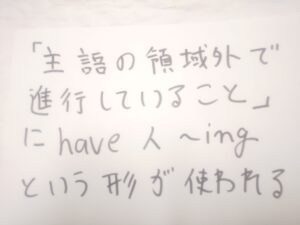 「主語の領域外で
進行していること」
に have 人 ~ing
という形が使われる